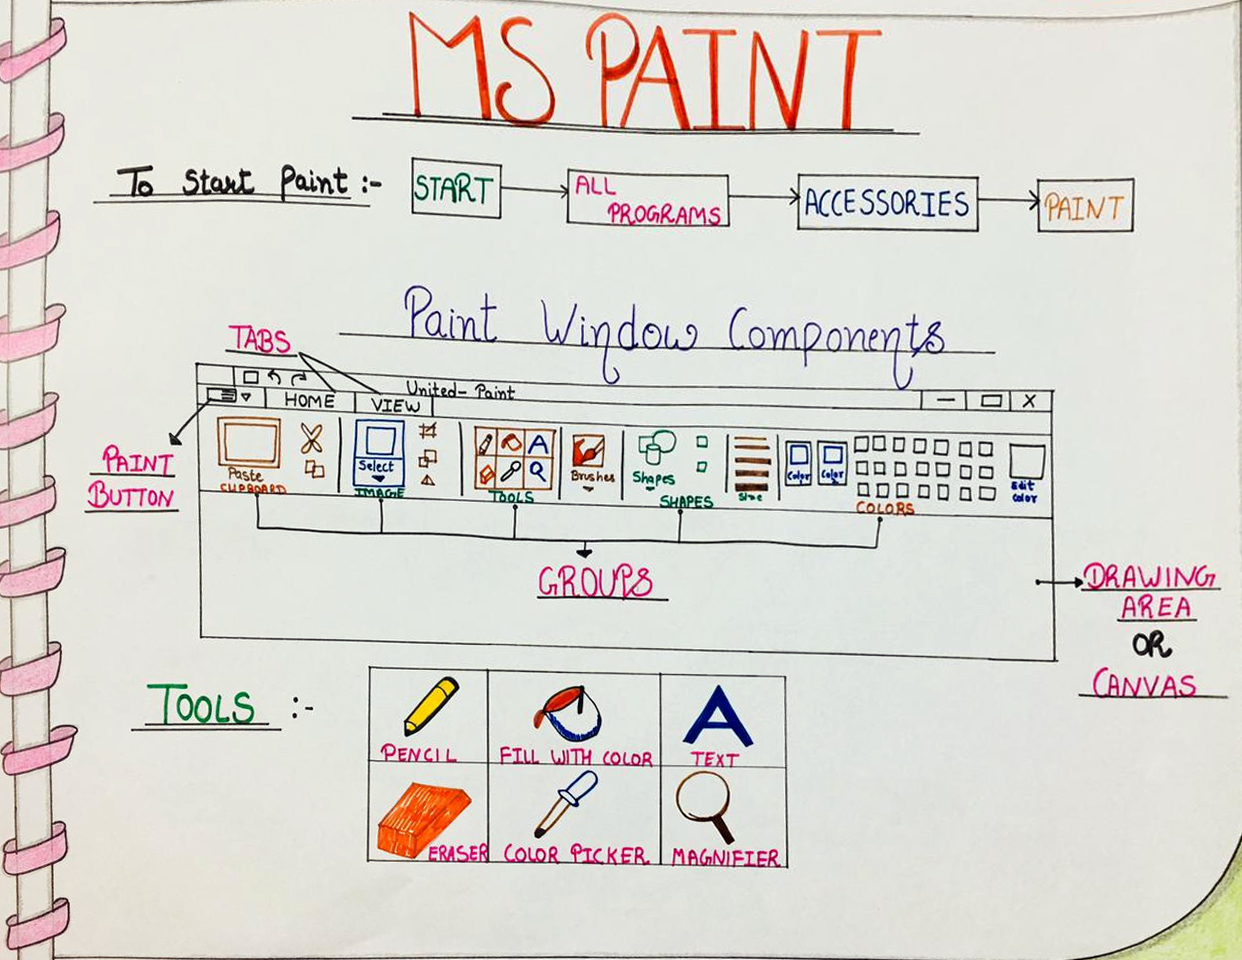 MS PAINT
To Start Paint :-
START
ALL
PROGRAMS
ACCESSORIES
PAINT
Paint Window Components
TABS
United- Paint
HOME
VIEW
X
PAINT
BUTTON
Paste
CLIPBOARD
Select
IMAGE
A
TOOLS
Brushes
Shapes
SHAPES
Size
Color
Color
COLORS
Edit
Color
GROUPS
DRAWING
AREA
OR
CANVAS
TOOLS :-
A
PENCIL
FILL WITH COLOR
TEXT
ERASER
COLOR PICKER
MAGNIFIER